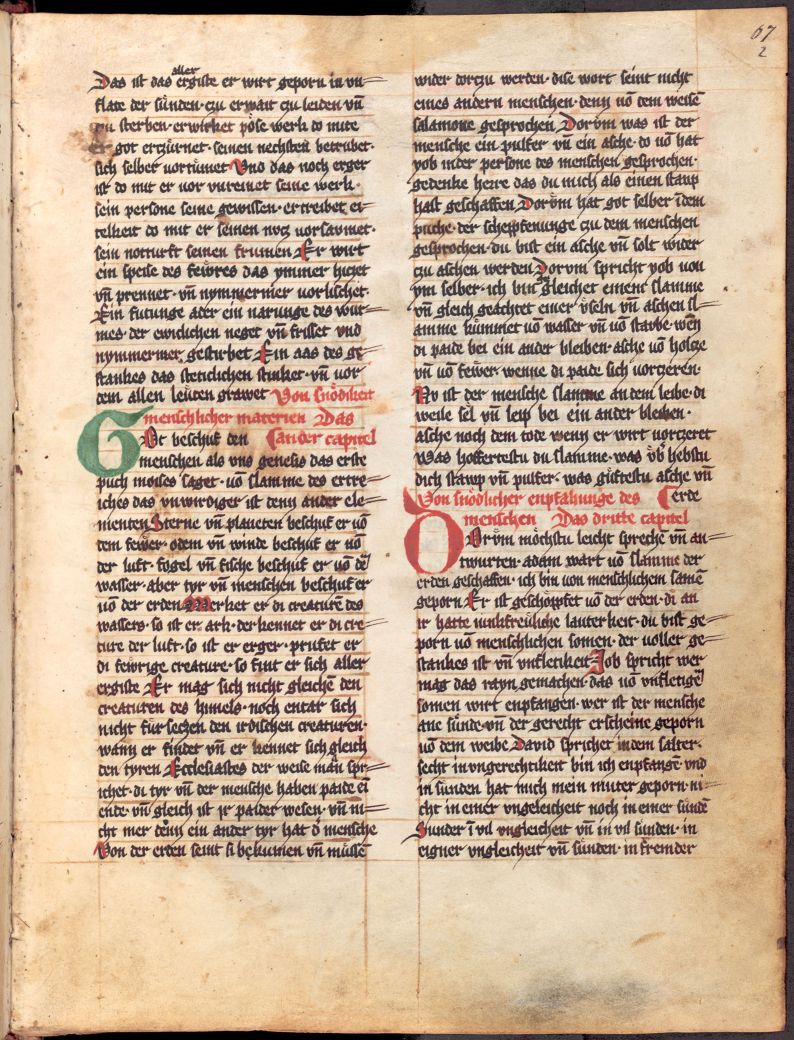 67
2
aller
Das ist das ergiste er wirt geporn in vn=
flate der sůnden· czu erwait czu leiden vn̄
czu sterben· erwirket pöse werk do mite
er got erczůrnet· seinen nechsten betrubet·
sich selber vortůmet Vnd das noch erger
ist do mit er vor vnreinet seine werk·
sein persone seine gewissen· er treibet ei=
telkeit do mit er seinen nvcz vorsavmet·
sein notturft seinen frumen Er wirt
ein speise des fewres das ymmer hiczet
vn̄ prennet· vn̄ nymmermer vorlischet·
Ein futunge ader ein narunge des wur=
mes der ewiclichen neget vn̄ frisset vnd
nymmermer gestirbet Ein aas des ge=
stankes das steticlichen stinket· vn̄ vor
dem allen leuten grawet Von snödikeit
menschlicher materien Das
Got beschuf den ander capitel
menschen als vns genesis das erste
puch moises saget· vō slamme des ertre=
iches das vnwirdiger ist denn ander ele=
menten Sterne vn̄ planeten beschuf er vō
dem fewer· odem vn̄ winde beschuf er vō
der luft· fogel vn̄ fische beschuf er vō dē
wasser· aber tyr vn̄ menschen beschuf er
vō der erden Merket er di creaturē des
wassers· so ist er ark· der kennet er di cre=
ture der luft· so ist er erger· prufet er
di fewrige creature· so fint er sich aller
ergiste Er mag sich nicht gleichē den
creaturen des hymels· noch entar sich
nicht fur seczen den irdischen creaturen·
wann er findet vn̄ er kennet sich gleich
den tyren Ecclesiastes der weise man spr=
ichet· di tyr vn̄ der mensche haben paide ein
ende· vn̄ gleich ist ir paider wesen· vn̄ ni=
cht mer denn ein ander tyr hat d' mensche
Von der erden seint si bekumen vn̄ müssē
wider dorczu werden· dise wort seint nicht
eines andern menschen· denn vō dem weisē
salamone gesprochen Dorvm was ist der
mensche ein pulfer vn̄ ein asche· do vō hat
yob in der persone des menschen gesprochen·
gedenke herre das du mich als einen staup
hast geschaffen Dorvm hat got selber īdem
puche· der scheppfenunge czu dem menschen
gesprochen· du bist ein asche vn̄ solt wider
czu aschen werden Dorvm spricht yob von
ym selber· ich bin gleichet einem slamme
vn̄ gleich geachtet einer vseln vn̄ aschen sl=
amme kummet vō wasser vn̄ vō staube· wēn
di paide bei ein ander bleiben· asche vō holcze
vn̄ vō fewer· wenne di paide sich vorczeren·
Nv ist der mensche slamme an dem leibe· di
weile sel vn̄ leip bei ein ander bleiben·
asche noch dem tode wenn er wirt vorczeret
Was hoffertestu du slamme· was vb' hebstu
dich staup vn̄ pulfer· was güftestu asche vn̄
Von snödlicher enpfahunge des erde
menschen Das dritte capitel
Dorvm möchstu leicht spreche vn̄ an=
twurten· adam wart vō slamme der
erden geschaffen· ich bin von menschlichem samē
geporn Er ist geschöppfet vō der erden· di an
ir hatte iunkfreuliche lauterkeit· du bist ge=
porn vō menschlichen somen· der voller ge=
stankes ist vn̄ vnfletikeit Job spricht wer
mag das rayn gemachen· das vō vnfletigē
somen wirt enpfangen· wer ist der mensche
ane sünde· vn̄ der gerecht erscheine geporn
vō dem weibe David sprichet in dem salter·
secht in vngerechtikeit bin ich enpfangē· vnd
in sunden hat mich mein muter geporn· ni=
cht in einer vngeleicheit noch in einer sundē
Sunder ī vil vngleicheit vn̄ in vil sunden· in
eigner vngleicheit vn̄ sünden· in fremder